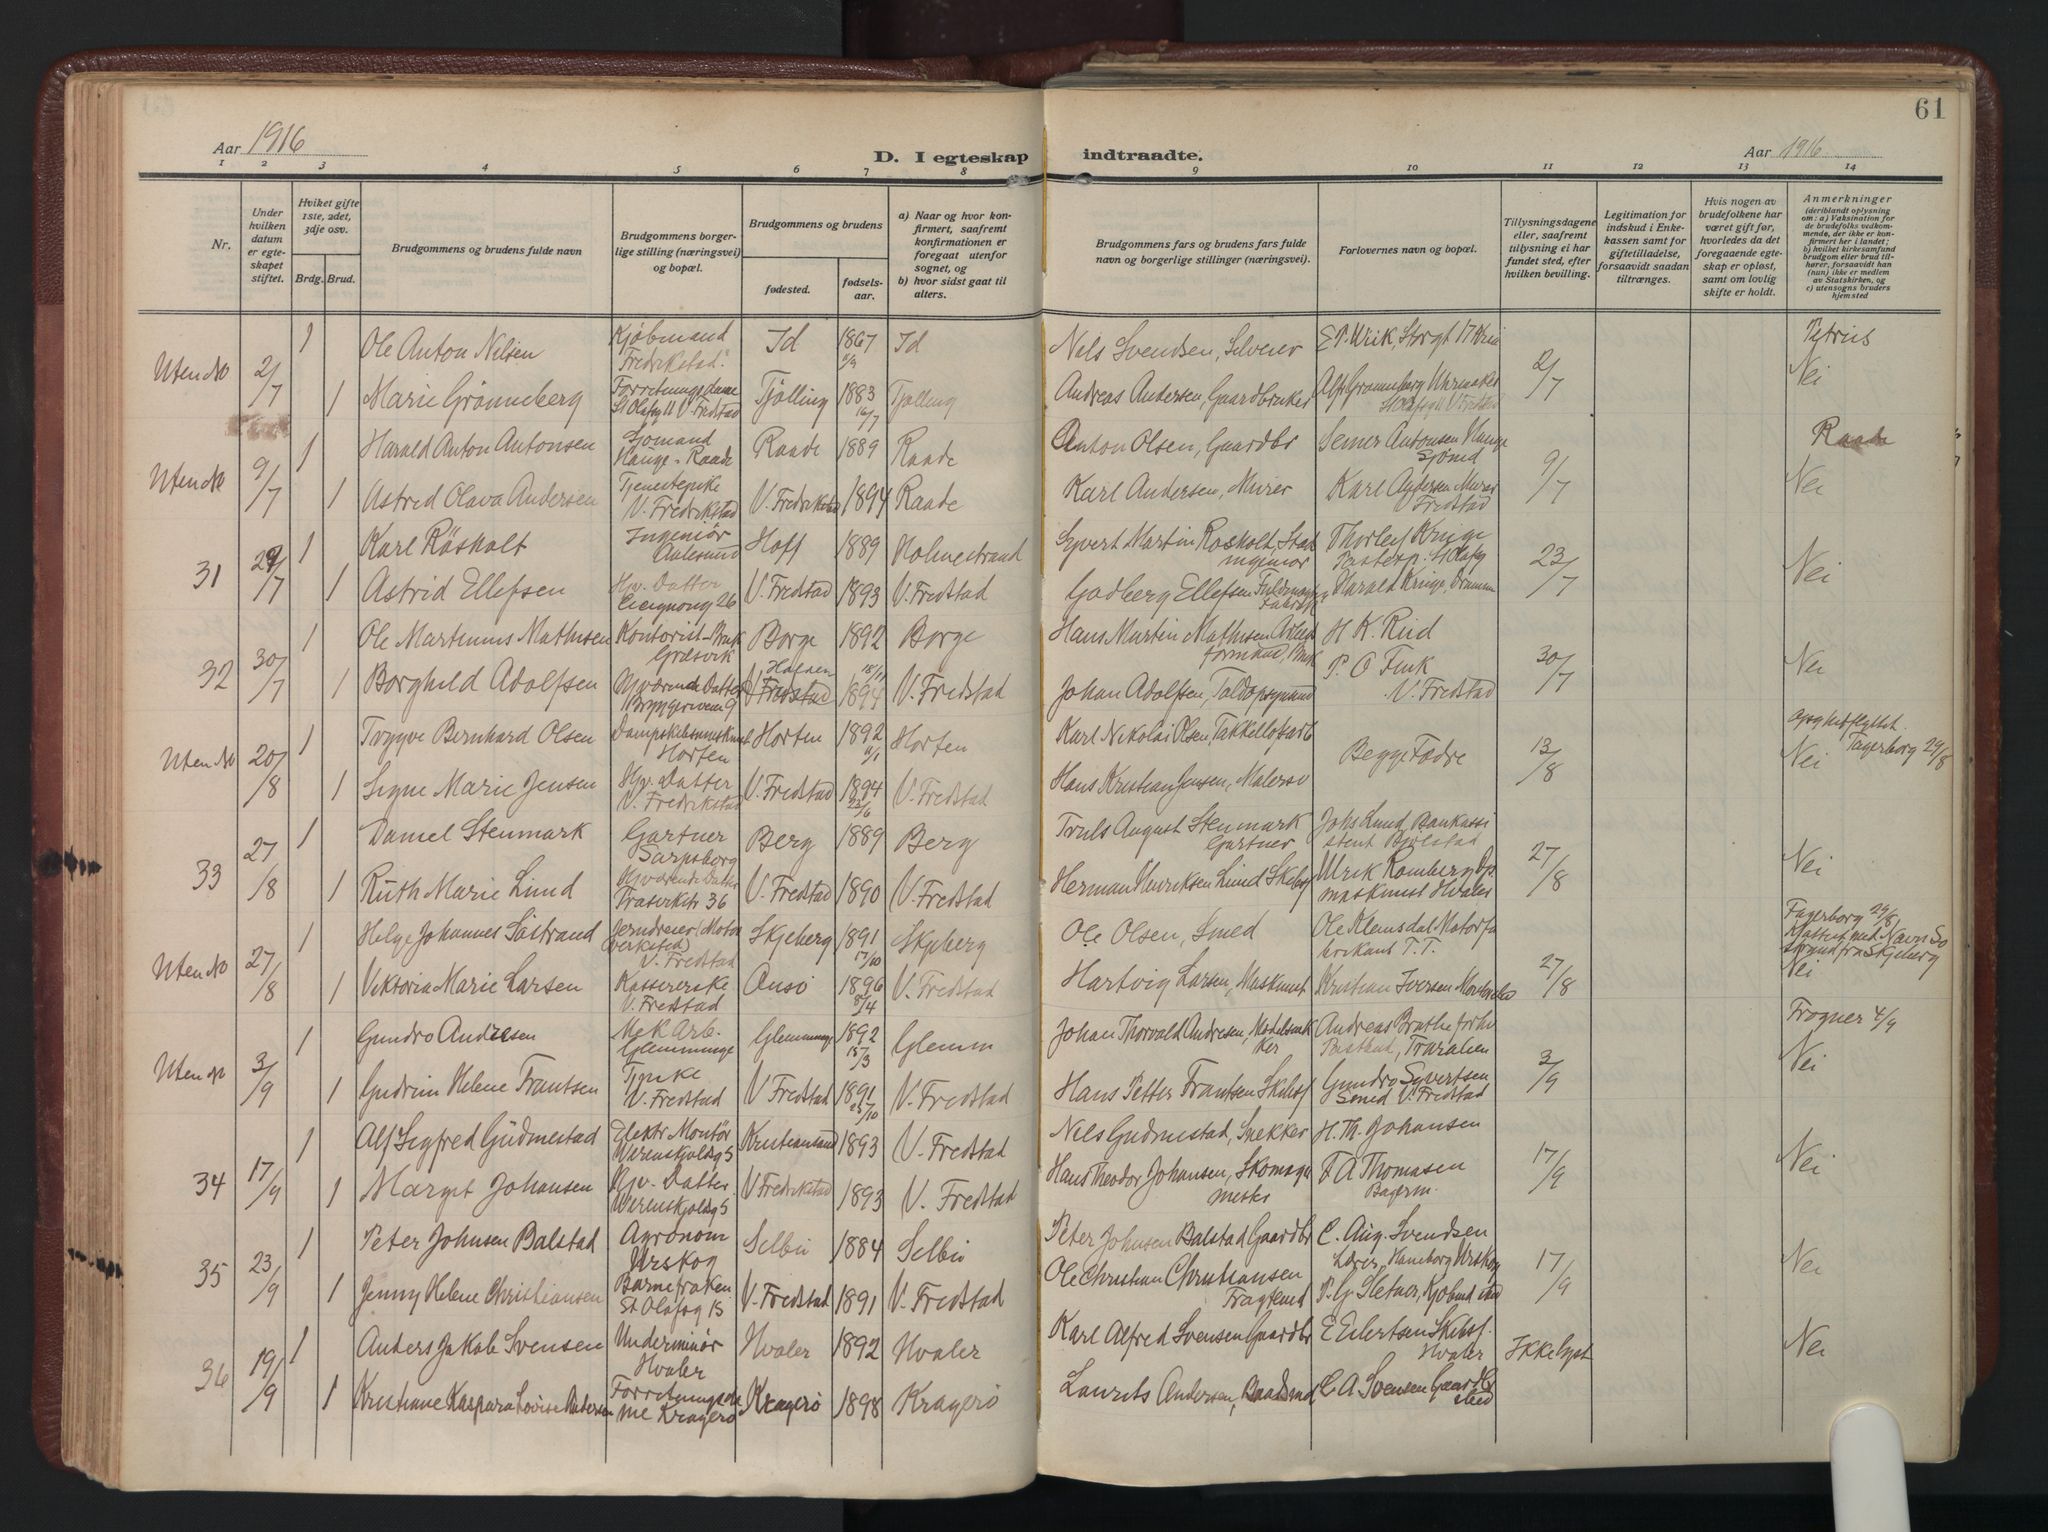 61
Aar 1916
D. I egteskap indtraadte.
Aar 1916
1 2 3 4 5 6 7 8 9 10 11 12 13 14
Nr.
Under hvilken datum er egteskapet stiftet.
Hviket gifte 1ste, 2det, 3dje osv.
Brdg. Brud.
Brudgommens og brudens fulde navn
Brudgommens borgerlige stilling (næringsvei) og bopæl.
Brudgommens og brudens
fødested.
fødselsaar.
a) Naar og hvor konfirmert, saafremt konfirmationen er foregaat utenfor sognet, og
b) hvor sidst gaat til alters.
Brudgommens fars og brudens fars fulde navn og borgerlige stillinger (næringsvei).
Forlovernes navn og bopæl.
Tillysningsdagene eller, saafremt tillysning ei har fundet sted, efter hvilken bevilling.
Legitimation for indskud i Enkekassen samt for giftetilladelse, forsaavidt saadan tiltrænges.
Hvis nogen av brudefolkene har været gift før, hvorledes da det foregaaende egteskap er opløst, samt om lovlig skifte er holdt.
Anmerkninger
(deriblandt oplysning om: a) Vaksination for de brudefolks vedkommende, der ikke er konfirmert her i landet; b) hvilket kirkesamfund brudgom eller brud tilhører, forsaavidt han (hun) ikke er medlem av Statskirken, og c) utensogns bruders hjemsted
1 Ole Anton Nilsen Kjøbmand Fredrikstad Id 1867 Id Nils Svendsen, Selveier Petrus
Uten No 2/7 1 Marie Grønneberg Forretningsdame St Olafsg 11 V. Fredstad Tjølling 1883 16/7 Tjølling Andreas Andersen, Gaardbruker Alf Grønneberg Uhrmaker St Olafsg 11 V Fredstad 2/7 Nei
1 Harald Anton Antonsen Sjømand Hauge - Raade Raade 1889 Raade Anton Olsen, Gaardbr Semer Antonsen Hauge Sjømd Raade
Uten No 9/7 1 Astrid Olava Andersen Tjenestepike V. Fredrikstad V. Fredrikstad 1894 Raade Karl Andersen, Murer Karl Andersen Murer V Fredstad 9/7 Nei
1 Karl Røsholt Ingeniør Aalesund Hoff 1889 Holmestrand Syvert Martin Røsholt, Stadsingeniør Thorleif Kringe
31 29/7 1 Astrid Ellefsen Hjv. Datter V. Fredstad 1893 V. Fredstad Godberg Ellefsen Harald Kringe, Drammen 23/7 Nei
1 Ole Martinius Mathisen Kontorist - Græsvik Borge 1892 Borge Hans Martin Mathisen H K. Rud
32 30/7 1 Borghild Adolfsen Hjværende Datter Bryggeriveien 9 Halden V Fredstad 18/11 1894 V. Fredstad Johan Adolfsen, Toldopsynsmand P. O Fink V. Fredstad 30/7 Nei
1 Trygve Bernhard Olsen Horten Horten 1892 11/1 Horten Karl Nikolai Olsen, Takkelloftsarb
Uten No 20/8 1 Signe Marie Jensen Hjv. Datter V. Fredrikstad V. Fredstad 1894 22/6 V. Fredstad Hans Kristian Jensen, Malersv Begge Fædre 13/8 Nei Fagerborg 29/8
1 Daniel Stenmark Gartner Sarpsborg Berg 1889 Berg Truls August Stenmark Gartner Johs Lund, Bankassistent Bjølstad
33 27/8 1 Ruth Marie Lund Hjværende Datter Traserkstr 36 V. Fredstad 1890 V. Fredstad Herman Henriksen Lund Skibsf Ulrik Romberg Dpmaskinist Hvaler 27/8 Nei
1 Helge Johannes Söstrand Jerndreier (Motorverksted) V. Fredstad Skjeberg 1891 17/10 Skjeberg Ole Olsen, Smed Ole Klemsdal Motorfabrikant T. T. Fagerborg 29/8 Navn Søstrand fra Skjeberg
Uten No 27/8 1 Viktoria Marie Larsen Kassererske V. Fredstad Onsø 1896 8/4 V. Fredstad Hartvig Larsen, Maskinist Kristian Iversen 27/8 Nei
1 Gundro Andresen Mek Arb. Glemminge Glemminge 1892 15/3 Glemm Johan Thorvald Andresen, Modelsnekker Andreas Brathe Frogner 4/9
Uten No 3/9 1 Gudrun Helene Frantsen Pike V. Fredstad V Fredstad 1891 25/10 V. Fredstad Hans Petter Frantsen Skibsf Gundro Syvertsen Smed V. Fredstad 3/9 Nei
1 Alf Sigfred Gudmestad Elektr Montör Werenskjoldsg 5 Kristiansand 1893 V. Fredstad Nils Gudmestad, Snekker H. Th. Johansen
34 17/9 1 Margit Johansen Hjv. Datter Werenskjoldsg 5 V Fredrikstad 1893 V. Fredstad Hans Theodor Johansen, Skomagermester F A Thomasen Bagerm. 17/9 Nei
1 Peter Johnsen Balstad Agronom Urskog Selbu 1884 Selbu Peter Johnsen Balstad Gaardbr C. Aug. Svendsen Urskog
35 23/9 1 Jenny Helene Christiansen Barnefrøken St Olafsg 15 V. Fredstad 1891 V. Fredstad Ole Christian Christiansen Fragtemd P. G. Sletner, Kjøbmd 17/9 Nei
1 Anders Jakob Svensen Underminør Hvaler Hvaler 1892 Hvaler Karl Alfred Svensen Gaardbr E Eilertsen Skibsf. Hvaler
36 19/9 1 Kristiane Kaspara Lovise Andersen Forretningsdame Kragerø Kragerø 1898 Kragerø Laurits Andersen, Baadsmd C A Svensen Gaardbr Ikke lyst Nei